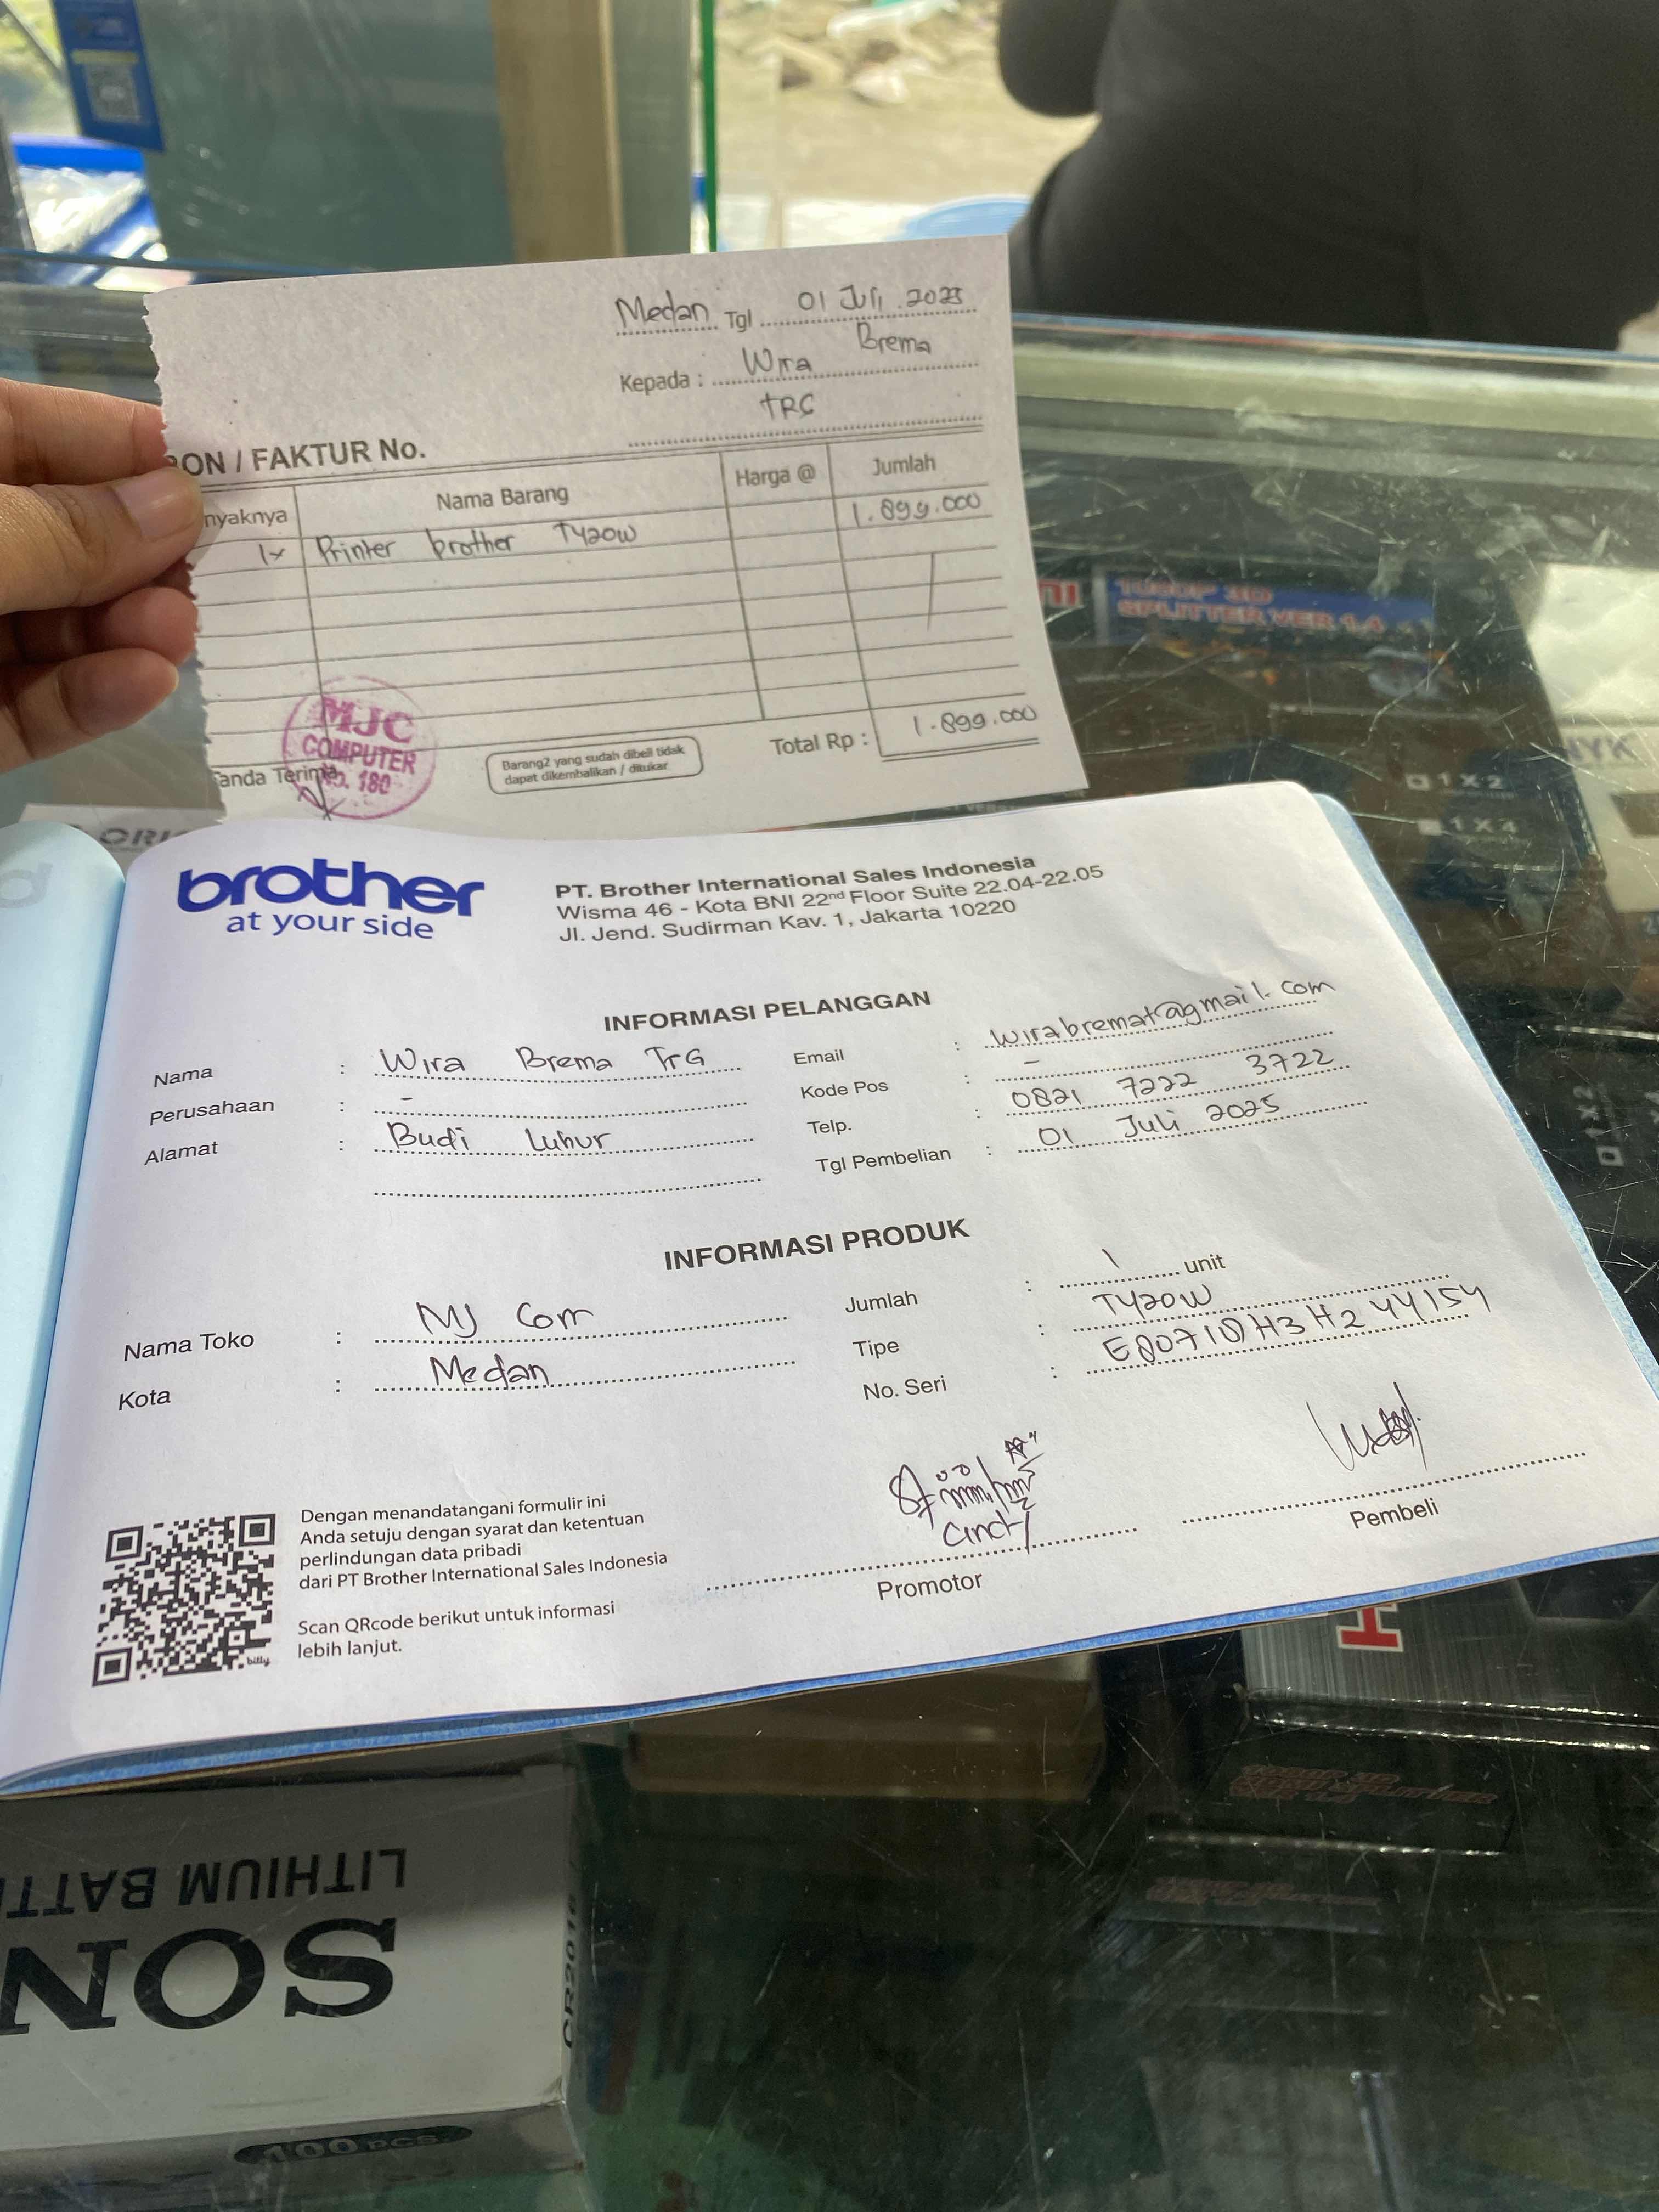 Medan Tgl 01 Juli 2025
Kepada : Wira Brema
TRG
BON / FAKTUR No.
nyaknya Nama Barang Harga @ Jumlah
1x Printer brother T420W 1.899.000
Total Rp : 1.899.000
Barang2 yang sudah dibeli tidak
dapat dikembalikan / ditukar
Tanda Terima
MJC
COMPUTER
NO. 180
1080P 3D
SPLITTER VER 1.4
1 X 2
1 X 4
brother
at your side
PT. Brother International Sales Indonesia
Wisma 46 - Kota BNI 22nd Floor Suite 22.04-22.05
Jl. Jend. Sudirman Kav. 1, Jakarta 10220
INFORMASI PELANGGAN
Nama : Wira Brema TrG
Perusahaan : -
Alamat : Budi Luhur
Email : wirabremat@gmail.com
Kode Pos : -
Telp. : 0821 7222 3722
Tgl Pembelian : 01 Juli 2025
INFORMASI PRODUK
Nama Toko : MJ Com
Kota : Medan
Jumlah : 1 unit
Tipe : T420W
No. Seri :
Dengan menandatangani formulir ini
Anda setuju dengan syarat dan ketentuan
perlindungan data pribadi
dari PT Brother International Sales Indonesia
Scan QRcode berikut untuk informasi
lebih lanjut.
billy
Cindy
Promotor
Pembeli
1 X 2
LITHIUM BATT
SON
CR2016
100 PCS